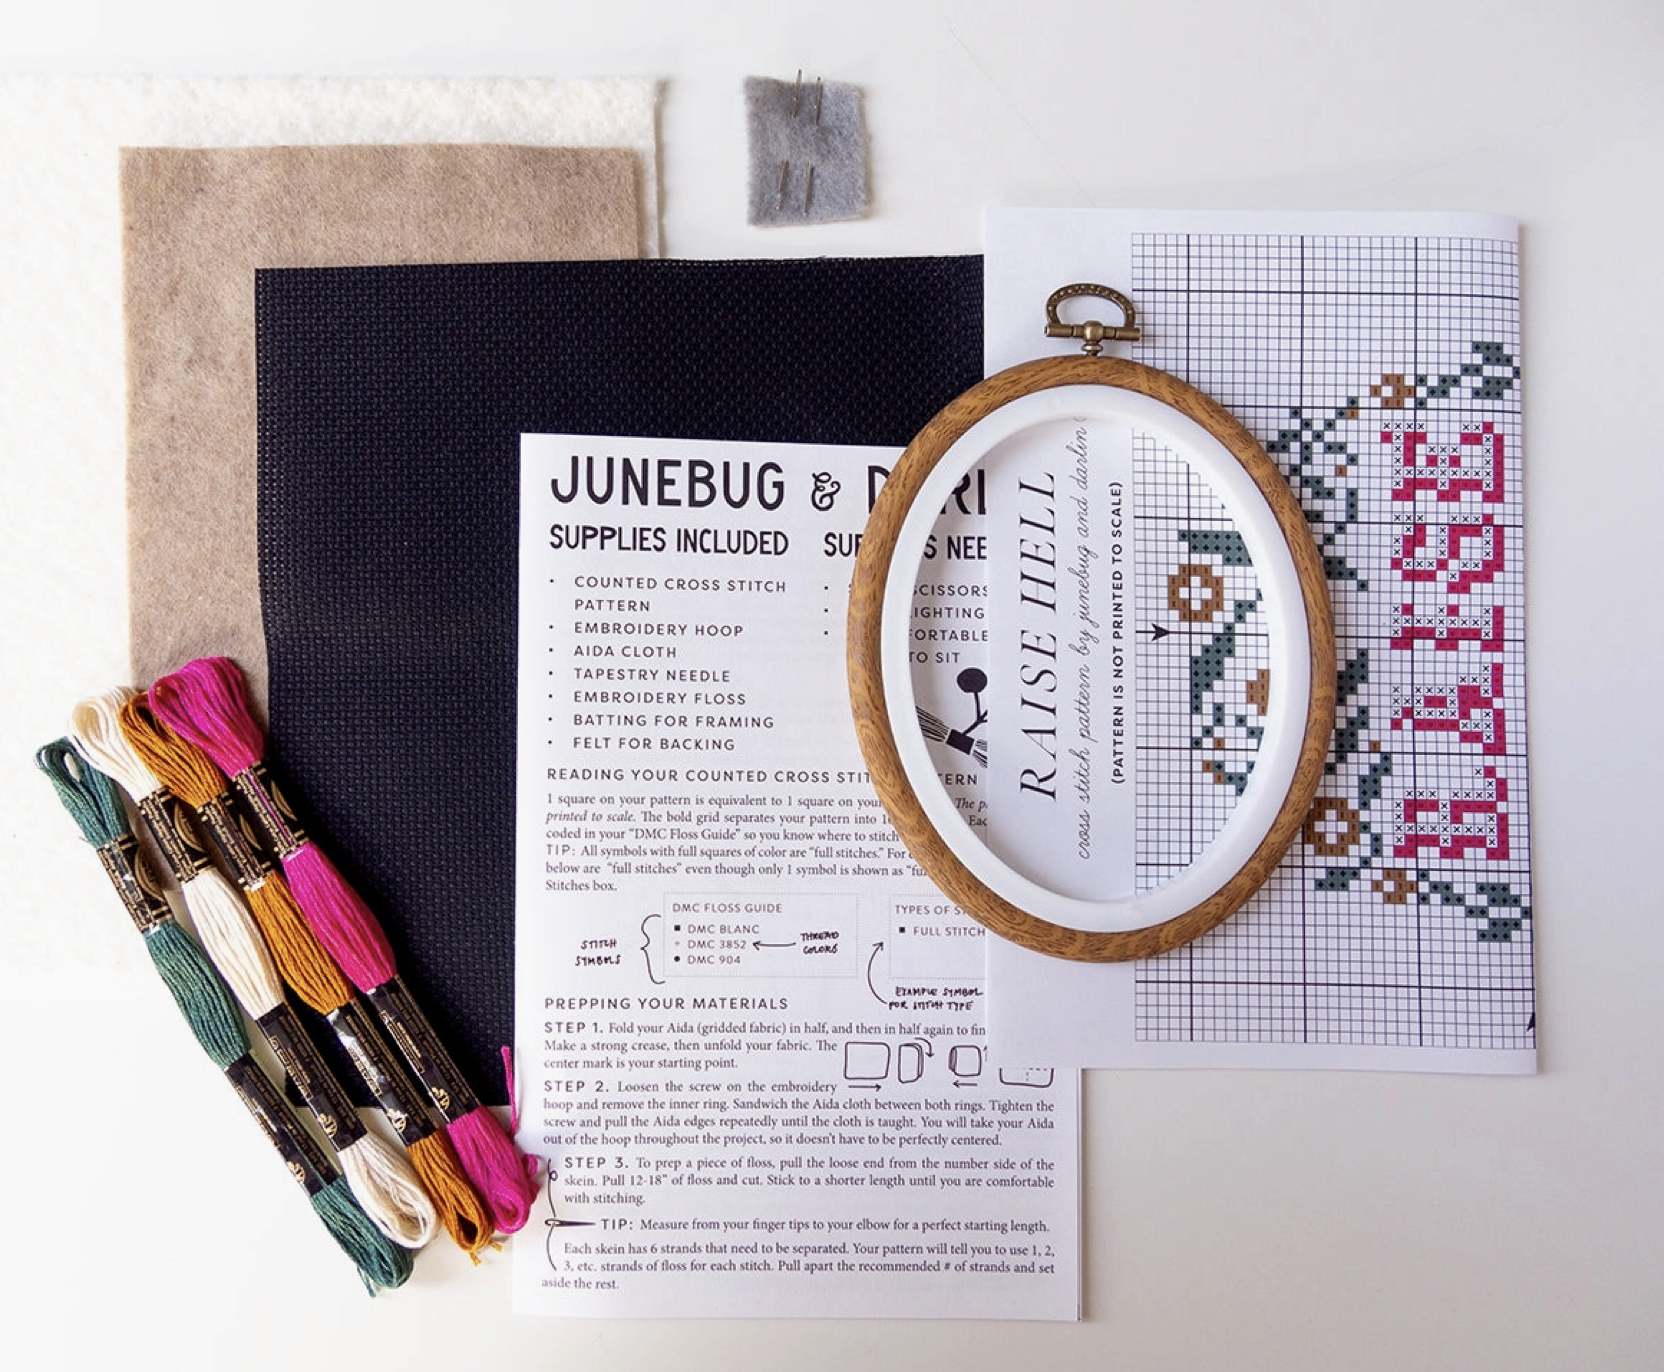 JUNEBUG &
SUPPLIES INCLUDED
• COUNTED CROSS STITCH
PATTERN
• EMBROIDERY HOOP
• AIDA CLOTH
• TAPESTRY NEEDLE
• EMBROIDERY FLOSS
• BATTING FOR FRAMING
• FELT FOR BACKING
SCISSORS
TO SIT
READING YOUR COUNTED CROSS
1 square on your pattern is equivalent to 1 square on your The
printed to scale. The bold grid separates your pattern into
coded in your "DMC Floss Guide" so you know where to stitch
TIP: All symbols with full squares of color are "full stitches." For
below are "full stitches" even though only 1 symbol is shown as
Stitches box.
DMC FLOSS GUIDE
■ DMC BLANC
DMC 3852
● DMC 904
STITCH
SYMBOLS
THREAD
COLORS
TYPES OF
■ FULL STITCH
EXAMPLE SYMBOL
FOR STITCH TYPE
PREPPING YOUR MATERIALS
STEP 1. Fold your Aida (gridded fabric) in half, and then in half again to
Make a strong crease, then unfold your fabric. The
center mark is your starting point.
STEP 2. Loosen the screw on the embroidery
hoop and remove the inner ring. Sandwich the Aida cloth between both rings. Tighten the
screw and pull the Aida edges repeatedly until the cloth is taught. You will take your Aida
out of the hoop throughout the project, so it doesn't have to be perfectly centered.
STEP 3. To prep a piece of floss, pull the loose end from the number side of the
skein. Pull 12-18" of floss and cut. Stick to a shorter length until you are comfortable
with stitching.
TIP: Measure from your finger tips to your elbow for a perfect starting length.
Each skein has 6 strands that need to be separated. Your pattern will tell you to use 1, 2,
3, etc. strands of floss for each stitch. Pull apart the recommended # of strands and set
aside the rest.
RAISE HELL
cross stitch pattern by junebug and darlin
(PATTERN IS NOT PRINTED TO SCALE)
RAISE